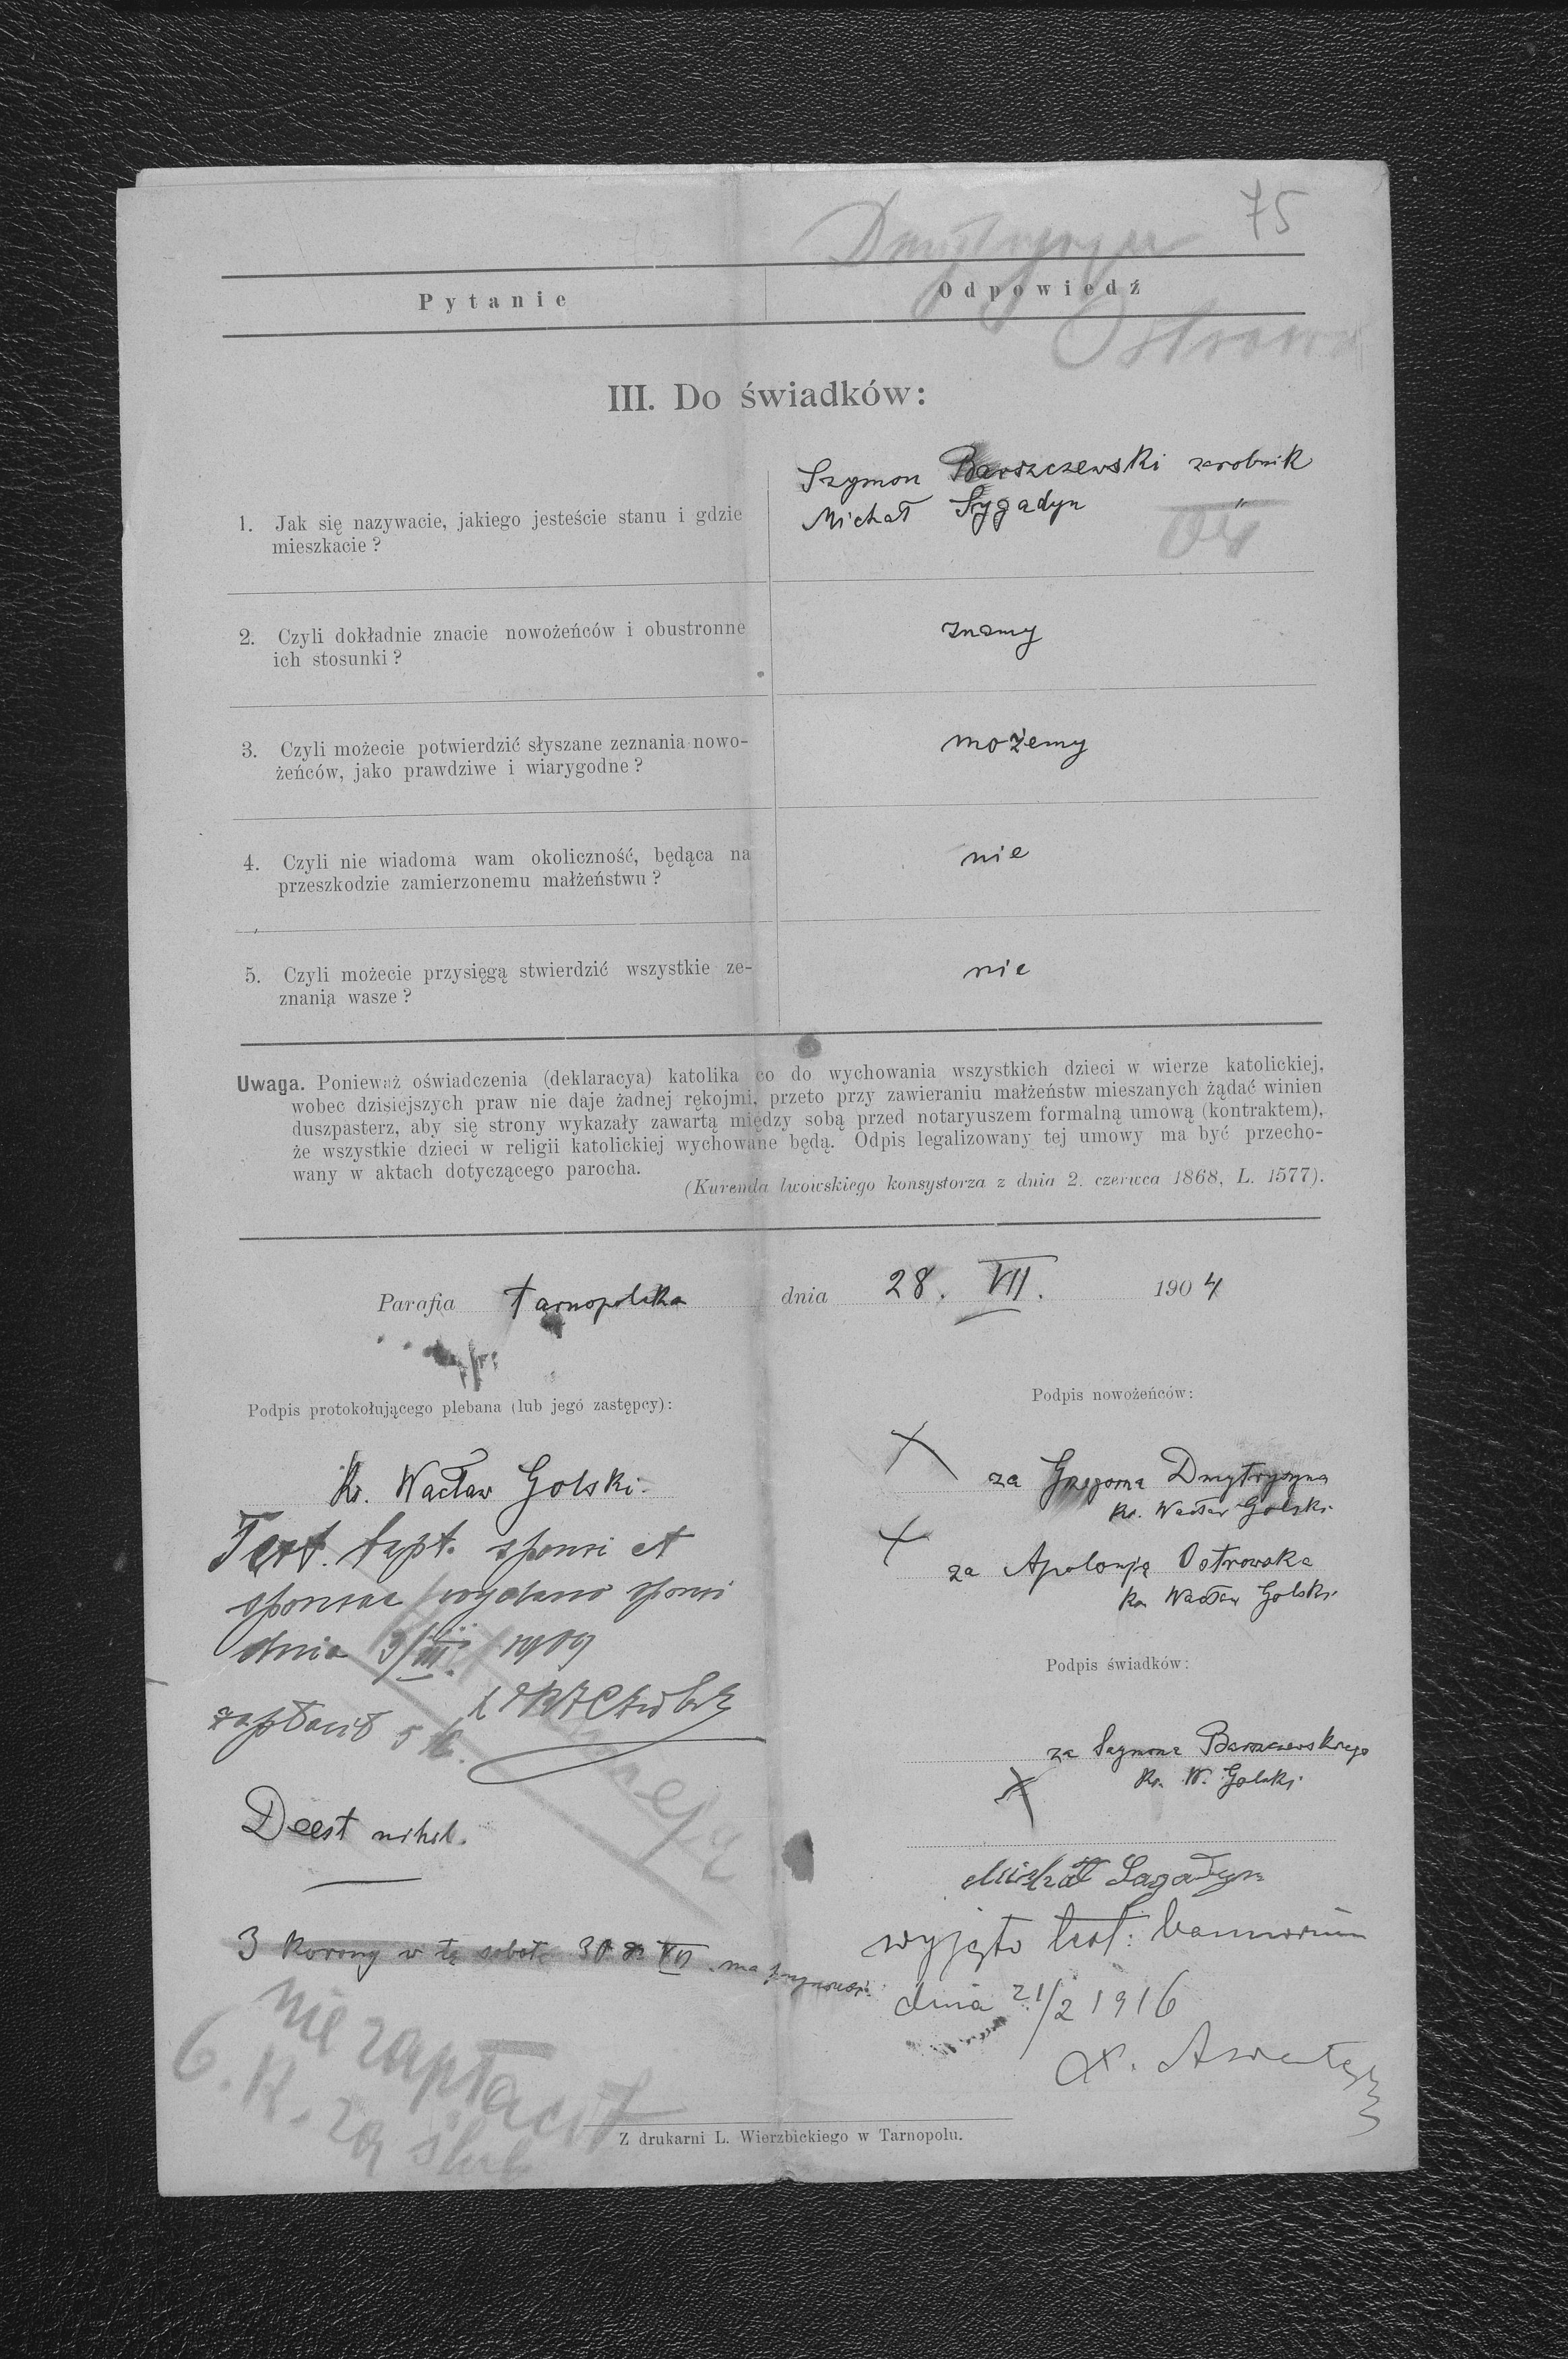 75
Pytanie
Odpowiedź
III. Do świadków:
Szymon Barszczewski zarobnik
Michał Sygadyn "
1. Jak się nazywacie, jakiego jesteście stanu i gdzie
mieszkacie?
2. Czyli dokładnie znacie nowożeńców i obustronne
ich stosunki?
znamy
3. Czyli możecie potwierdzić słyszane zeznania nowo-
żeńców, jako prawdziwe i wiarygodne?
możemy
4. Czyli nie wiadoma wam okoliczność, będąca na
przeszkodzie zamierzonemu małżeństwu?
nie
5. Czyli możecie przysięgą stwierdzić wszystkie ze-
znania wasze?
nie
Uwaga. Ponieważ oświadczenia (deklaracya) katolika co do wychowania wszystkich dzieci w wierze katolickiej,
wobec dzisiejszych praw nie daje żadnej rękojmi, przeto przy zawieraniu małżeństw mieszanych żądać winien
duszpasterz, aby się strony wykazały zawartą między sobą przed notaryuszem formalną umową (kontraktem),
że wszystkie dzieci w religii katolickiej wychowane będą. Odpis legalizowany tej umowy ma być przecho-
wany w aktach dotyczącego parocha.
(Kurenda lwowskiego konsystorza z dnia 2. czerwca 1868, L. 1577).
Parafia Tarnopolska dnia 28. VII. 1904
Podpis protokołującego plebana (lub jego zastępcy):
Ks. Wacław Golski
Test. bapt. sponsi et
sponsae wydano sponsi
dnia 3/III. 1909
zapłacił 5 K.
Deest nihil.
3 korony w tę sobotę 30 VII ma
nie zapłacił
6. K. za ślub
Podpis nowożeńców:
za Grzegorza Dmytryszyna
Ks. Wacław Golski
za Apolonję Ostrowska
Ks. Wacław Golski
Podpis świadków:
za Szymona Barszczewskiego
Ks. W. Golski
Michał
wyjęto test: bannorum
dnia 21/2 1916
Z drukarni L. Wierzbickiego w Tarnopolu.